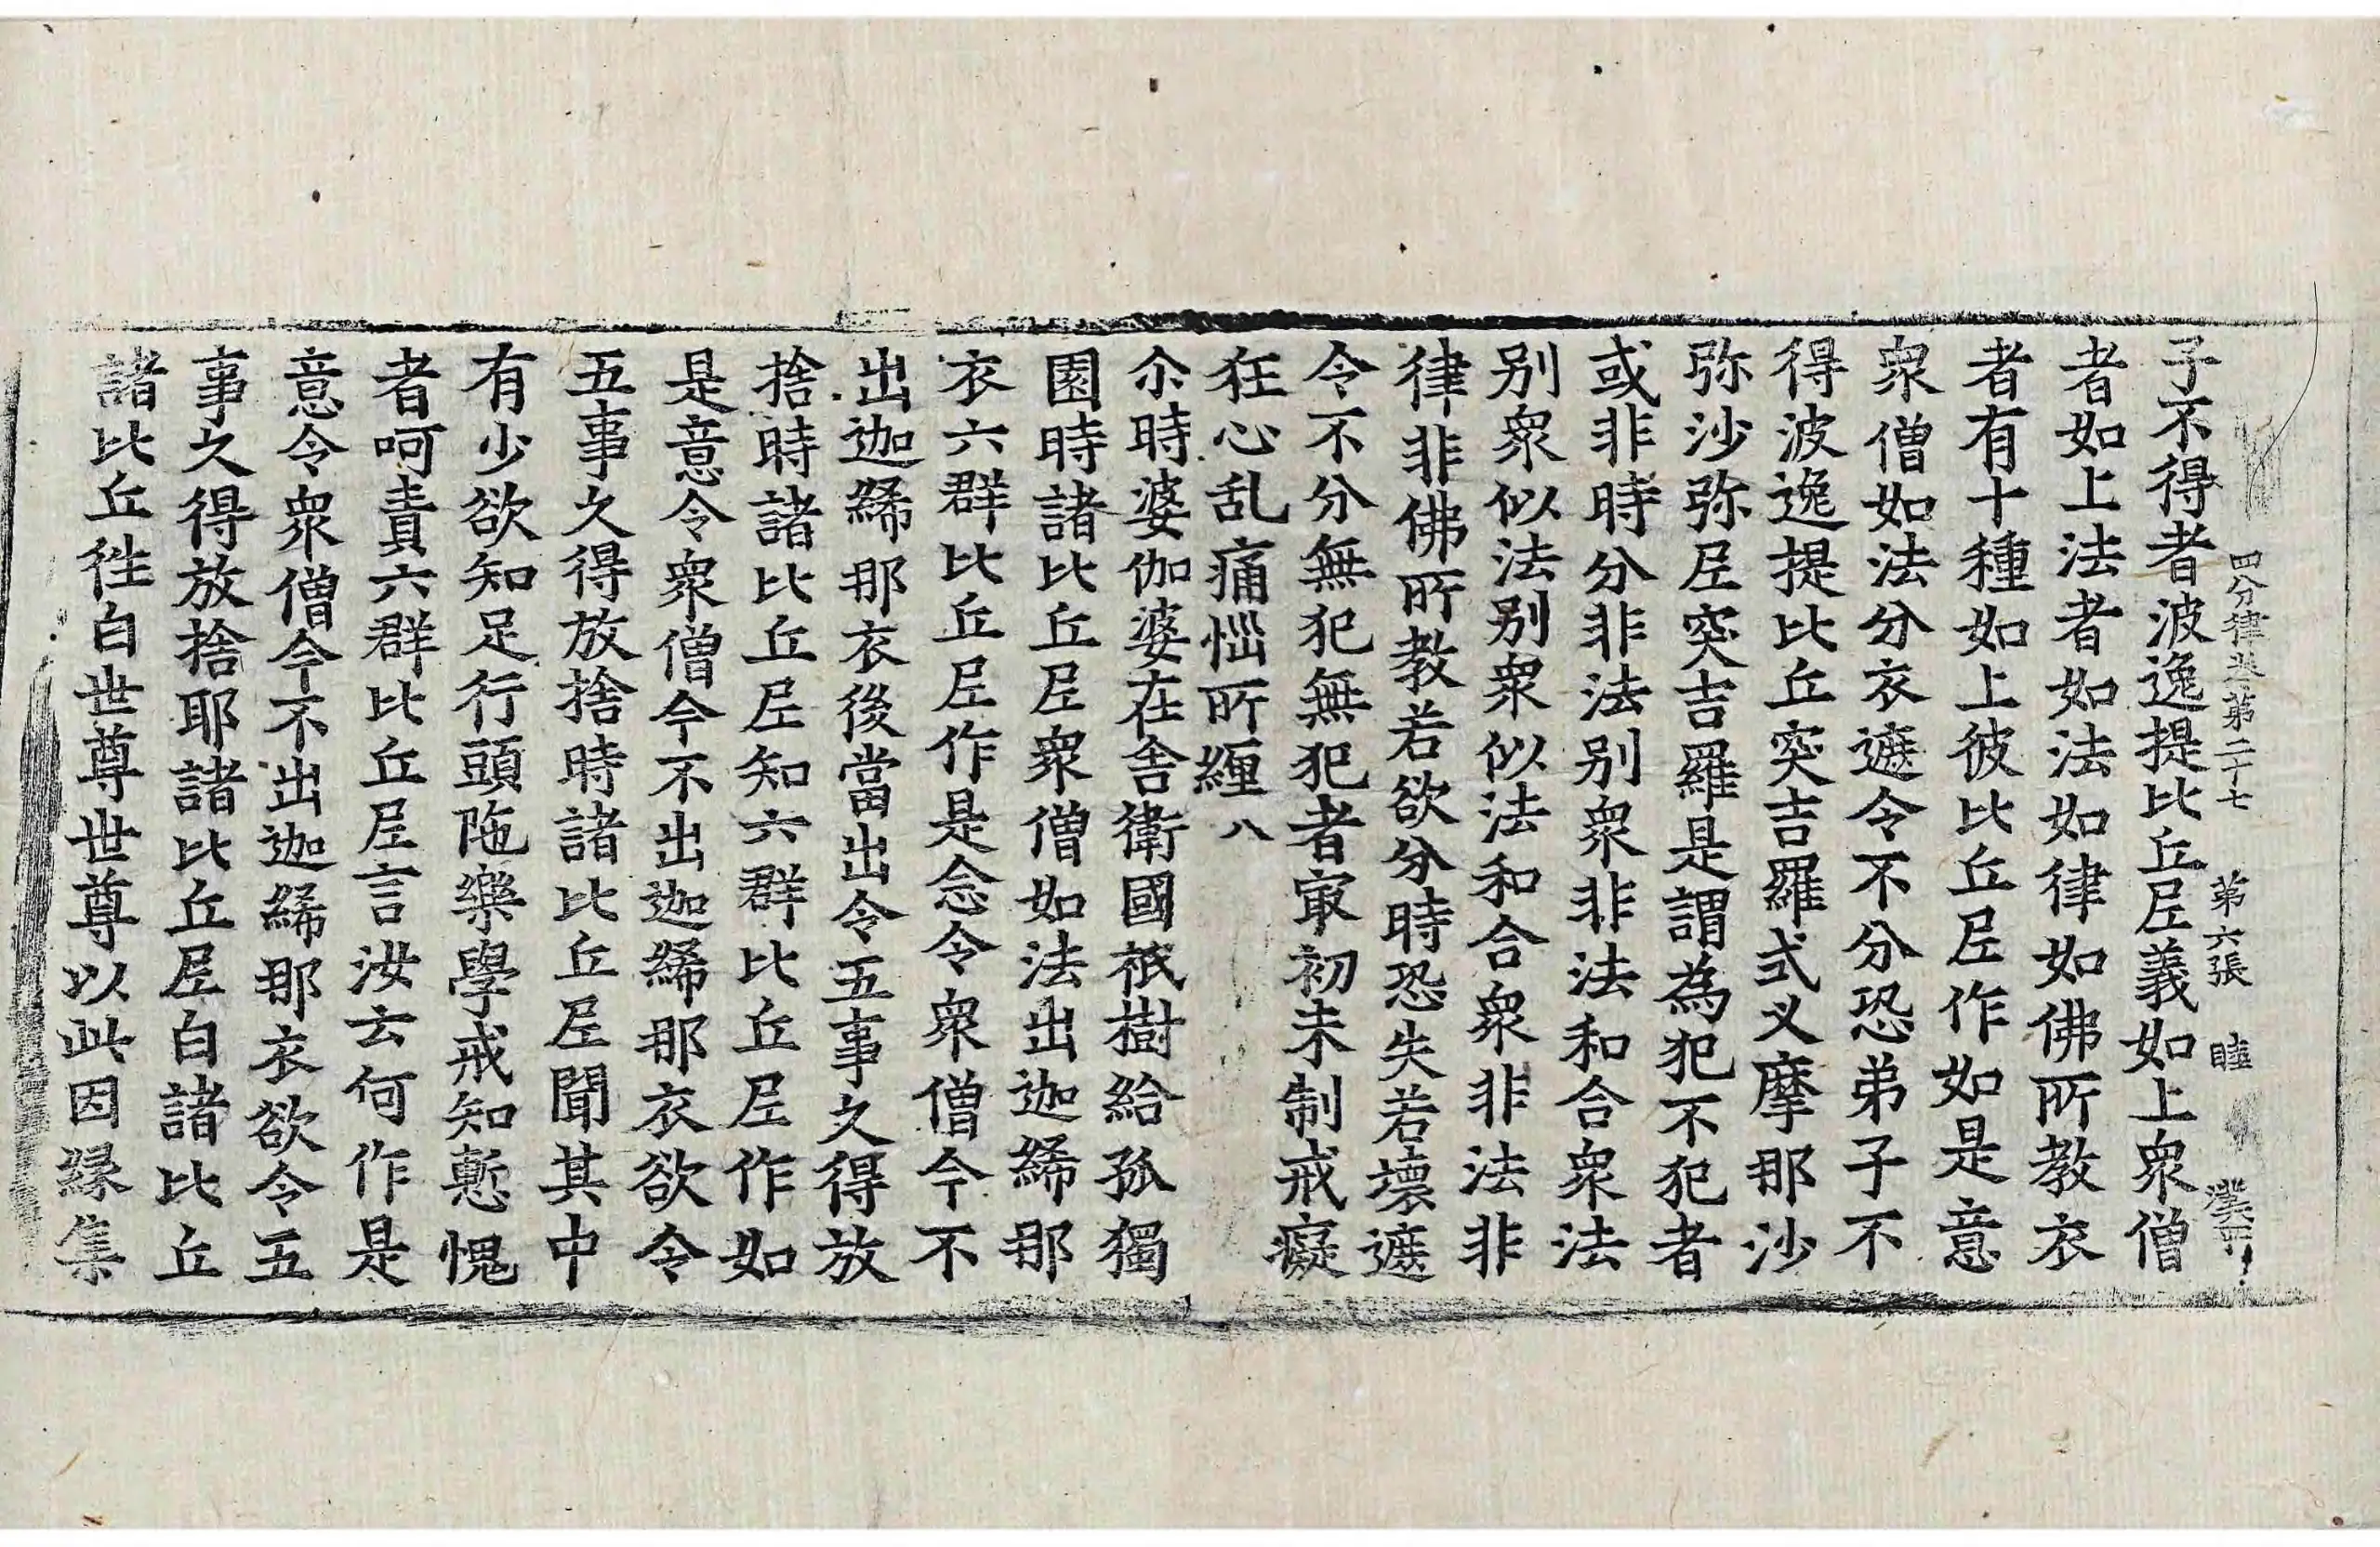 四分律卷第二十七　第六張　睦
子不得者波逸提比丘尼義如上衆僧
者如上法者如法如律如佛所教衣
者有十種如上彼比丘尼作如是意
衆僧如法分衣遮令不分恐弟子不
得波逸提比丘突吉羅式叉摩那沙
弥沙弥尼突吉羅是謂為犯不犯者
或非時分非法别衆非法和合衆法
别衆似法别衆似法和合衆非法非
律非佛所教若欲分時恐失若壞遮
令不分無犯無犯者㝡初未制戒癡
狂心乱痛惱所纏八
尒時婆伽婆在舍衛國祇樹給孤獨
園時諸比丘尼衆僧如法出迦絺那
衣六群比丘尼作是念令衆僧今不
出迦絺那衣後當出令五事久得放
捨時諸比丘尼知六群比丘尼作如
是意令衆僧今不出迦絺那衣欲令
五事久得放捨時諸比丘尼聞其中
有少欲知足行頭陁樂學戒知慙愧
者呵責六群比丘尼言汝云何作是
意令衆僧今不出迦絺那衣欲令五
事久得放捨耶諸比丘尼白諸比丘
諸比丘徃白世尊世尊以此因縁集